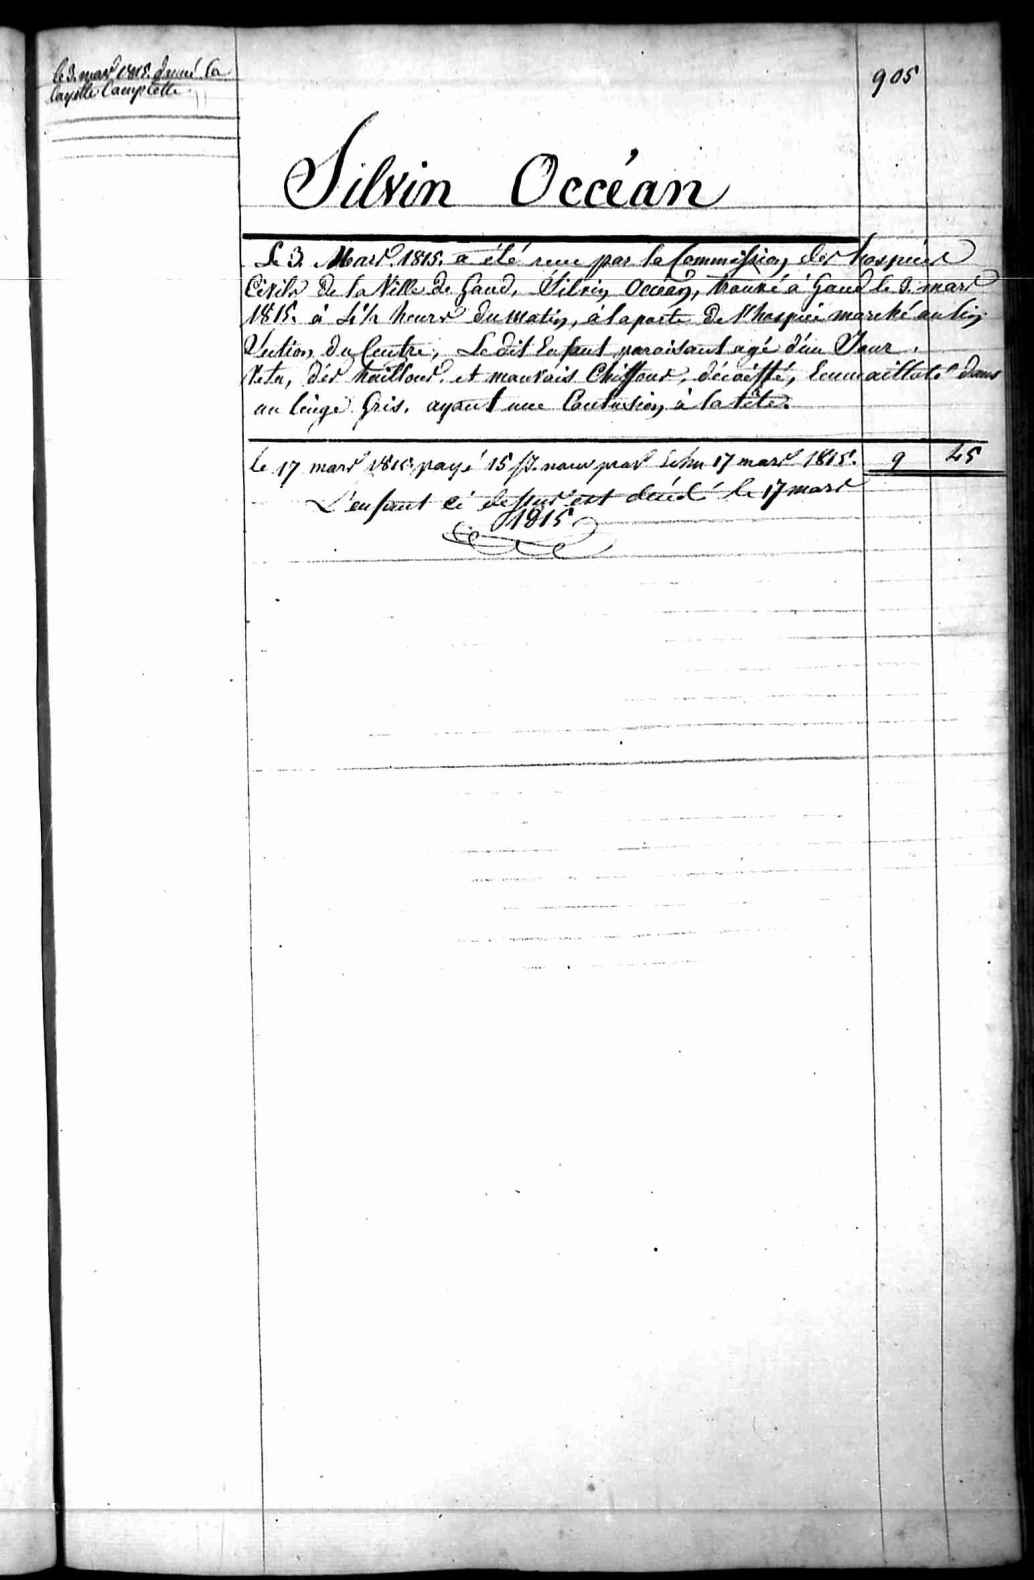 le 3. mars 1815. donné la
layette Complette.
905
Silvin Occéan
Le 3. Mars 1815. a été reçu par la Commission des hospices
Civils de la Ville de Gand, Silvin Occéan, trouvé à Gand le 3. mars
1815. à 4 1/2 heures du matin, à la porte de l'hospice marché au lin
Section du Centre, Le dit Enfant paroissant agé d'un Jour.
Vetu, des haillons et mauvais Chiffons, décoiffé, Emmailloté dans
un linge Gris, ayant une Contusion à la tête.
le 17 mars 1815 payé 15 jrs. nour par 17 mars 1815. 9 45
L'enfant ci dessus est décédé le 17 mars
1815